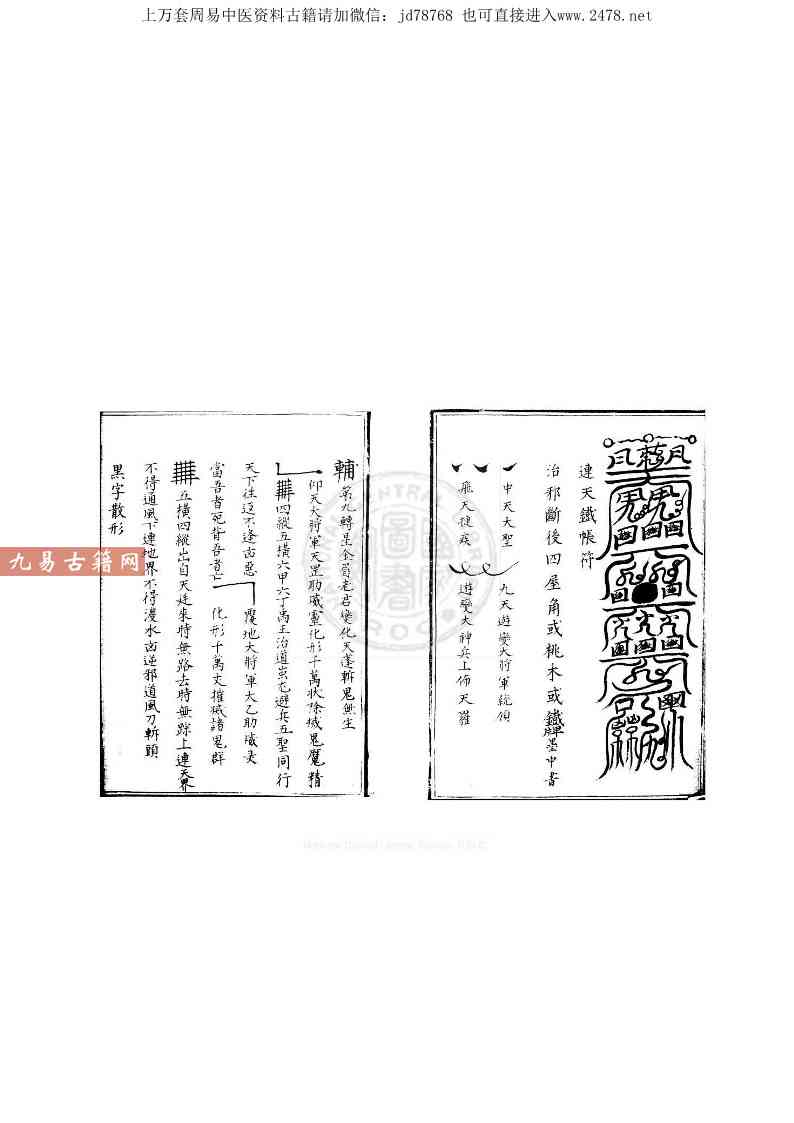 上万套周易中医资料古籍请加微信：jd78768 也可直接进入www.2478.net
連天鐵帳符
治邪斷後四屋角或桃木或鐵牌墨中書
中天大聖 九天遊變大將軍統領
飛天捷疾 遊變大神兵上佈天羅
輔第九轉星金眉老君變化天蓬斬鬼無生
仰天大將軍天罡助威靈化形千萬狀除滅鬼魔精
四縱五橫六甲六丁禹王治道蚩尤避兵五聖同行
天下往還不逢凶惡 覆地大將軍太乙助威
當吾者死背吾者亡 化形千萬丈摧滅諸鬼群
五橫四縱出自天廷來時無路去時無踪上連天界
不得通風下連地界不得漫水凶逆邪道風刀斬頭
黑字散形
九易古籍网